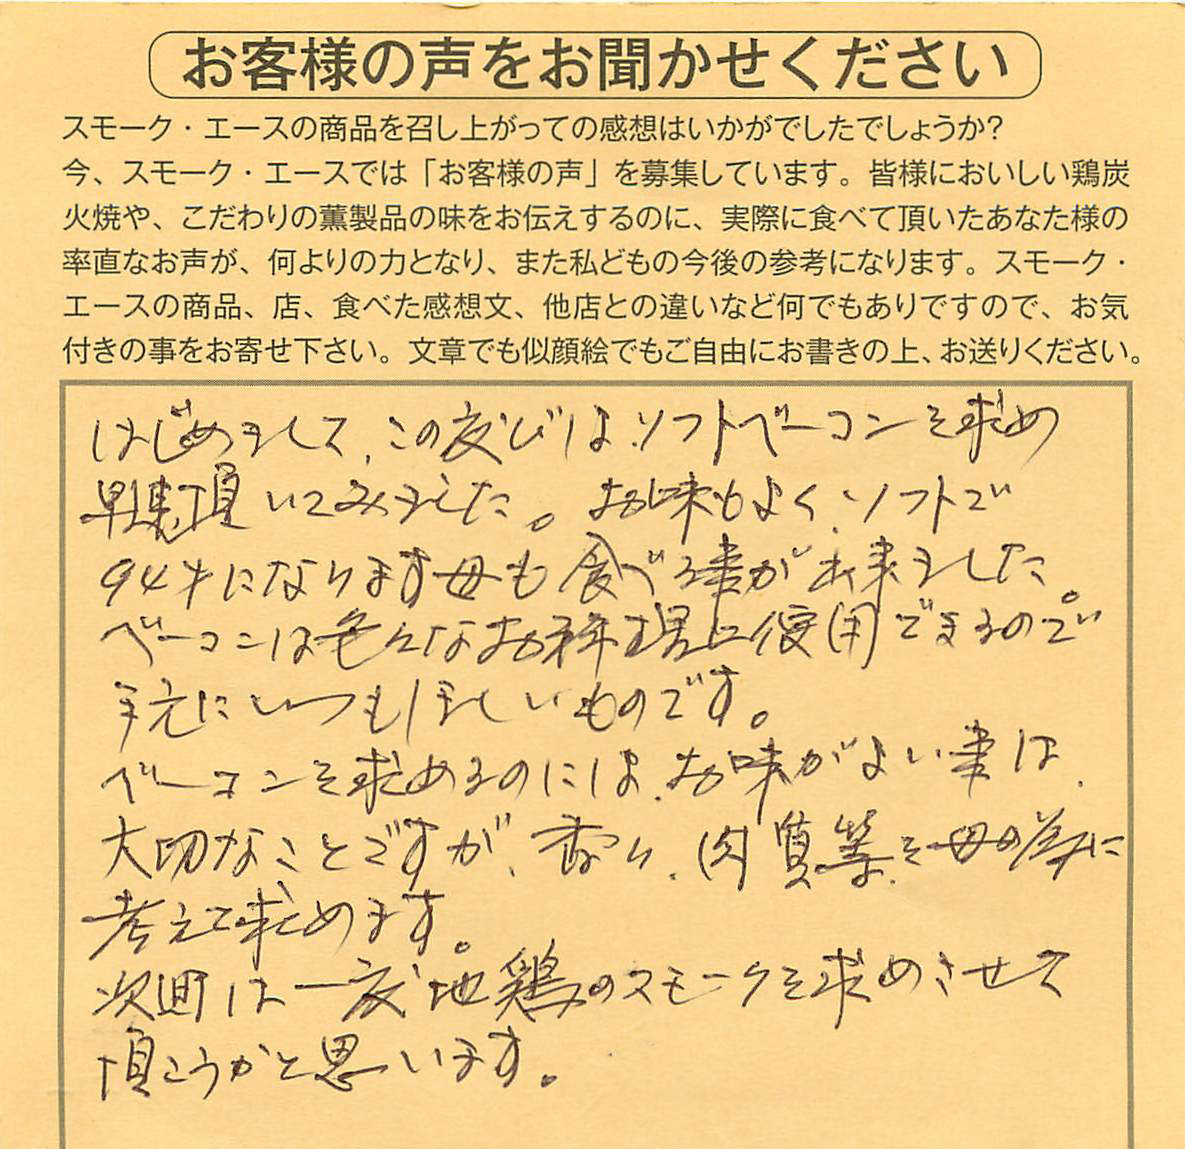 お客様の声をお聞かせください
スモーク・エースの商品を召し上がっての感想はいかがでしたでしょうか?
今、スモーク・エースでは「お客様の声」を募集しています。皆様においしい鶏炭
火焼や、こだわりの薫製品の味をお伝えするのに、実際に食べて頂いたあなた様の
率直なお声が、何よりの力となり、また私どもの今後の参考になります。スモーク・
エースの商品、店、食べた感想文、他店との違いなど何でもありですので、お気
付きの事をお寄せ下さい。文章でも似顔絵でもご自由にお書きの上、お送りください。
はじめまして、この度びは、ソフトベーコンを求め
早速頂いてみました。お味もよく、ソフトで
94才になります母も食べる事が出来ました。
ベーコンは色々なお料理に使用できるので
手元にいつもほしいものです。
ベーコンを求めるのには、お味がよい事は、
大切なことですが、香り、肉質等、を母の為に
考えて求めます。
次回は一度地鶏のスモークを求めさせて
頂こうかと思います。